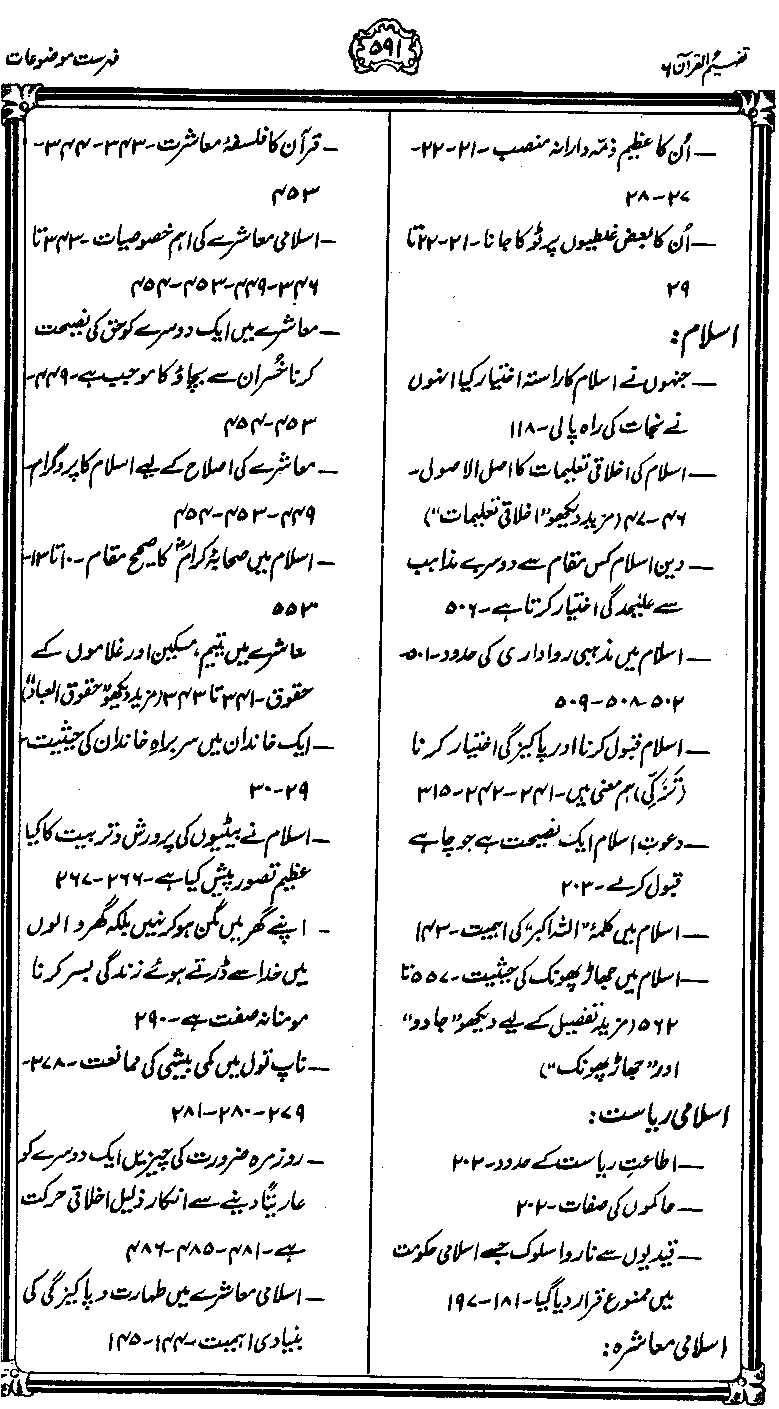 تفہیم القرآن ۶
۵۹۱
فہرست موضوعات
— اُن کا عظیم ذمہ دارانہ منصب -۲۱-۲۲-
۲۷-۲۸
— اُن کا بعض غلطیوں پر ٹوکا جانا -۲۱-۲۲ تا
۲۹
اسلام:
— جنہوں نے اسلام کا راستہ اختیار کیا انہوں
نے نجات کی راہ پالی -۱۱۸
— اسلام کی اخلاقی تعلیمات کا اصل الاصول-
۴۶-۴۷ (مزید دیکھو "اخلاقی تعلیمات")
— دین اسلام کس مقام سے دوسرے مذاہب
سے علیٰحدگی اختیار کرتا ہے -۵۰۶
— اسلام میں مذہبی رواداری کی حدود -۵۰۱-
۵۰۲-۵۰۸-۵۰۹
— اسلام قبول کرنا اور پاکیزگی اختیار کرنا
(تَزَکّٰی) ہم معنی ہیں -۲۴۱-۲۴۲-۳۱۵
— دعوتِ اسلام ایک نصیحت ہے جو چاہے
قبول کرلے -۲۰۳
— اسلام میں کلمۂ "اللہ اکبر" کی اہمیت -۱۴۳
— اسلام میں جھاڑ پھونک کی حیثیت -۵۵۷ تا
۵۶۲ (مزید تفصیل کے لیے دیکھو "جادو"
اور "جھاڑ پھونک")
اسلامی ریاست:
— اطاعتِ ریاست کے حدود -۲۰۲
— حاکموں کی صفات -۲۰۲
— قیدیوں سے ناروا سلوک جسے اسلامی حکومت
میں ممنوع قرار دیا گیا -۱۸۱-۱۹۷
اسلامی معاشرہ:
— قرآن کا فلسفۂ معاشرت -۳۴۳-۳۴۴-
۴۵۳
— اسلامی معاشرے کی اہم خصوصیات -۳۴۳ تا
۳۴۶-۴۴۹-۴۵۳-۴۵۴
— معاشرے میں ایک دوسرے کو حق کی نصیحت
کرنا خُسران سے بچاؤ کا موجب ہے -۴۴۹-
۴۵۳-۴۵۴
— معاشرے کی اصلاح کے لیے اسلام کا پروگرام-
۴۴۹-۴۵۳-۴۵۴
— اسلام میں صحابۂ کرامؓ کا صحیح مقام -۱۰ تا ۱۳-
۵۵۳
معاشرے میں یتیم، مسکین اور غلاموں کے
حقوق -۳۴۱ تا ۳۴۳ (مزید دیکھو "حقوق العباد")
— ایک خاندان میں سربراہِ خاندان کی حیثیت-
۲۹-۳۰
— اسلام نے بیٹیوں کی پرورش و تربیت کا کیا
عظیم تصور پیش کیا ہے -۲۶۶-۲۶۷
- اپنے گھر میں مگن ہو کر نہیں بلکہ گھر والوں
میں خدا سے ڈرتے ہوئے زندگی بسر کرنا
مومنانہ صفت ہے -۲۹۰
— ناپ تول میں کمی بیشی کی ممانعت -۲۷۸-
۲۷۹-۲۸۰-۲۸۱
— روزمرہ ضرورت کی چیزیں ایک دوسرے کو
عاریتًا دینے سے انکار ذلیل اخلاقی حرکت
ہے -۴۸۱-۴۸۵-۴۸۶
— اسلامی معاشرے میں طہارت و پاکیزگی کی
بنیادی اہمیت -۱۴۴-۱۴۵